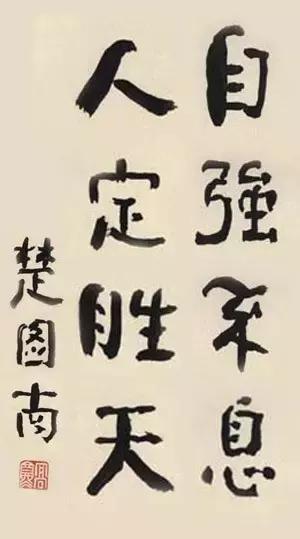 自強不息
人定胜天
楚圖南